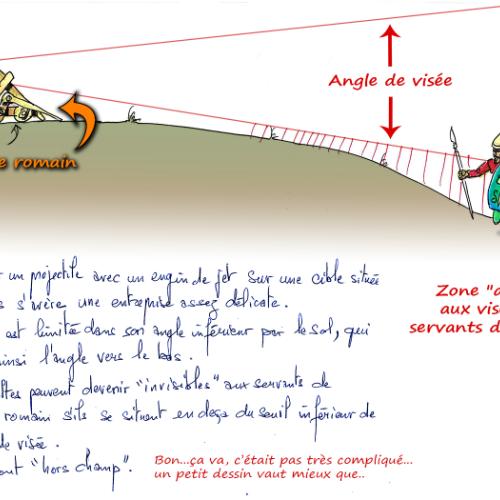 Angle de visée
e romain
Zone "a
aux vis
servants d
r un projectile avec un engin de jet sur une cible située
s s'avère une entreprise assez délicate.
est limitée dans son angle inférieur par le sol, qui
insi l'angle vers le bas.
ltes peuvent devenir "invisibles" aux servants de
romain s'ils se situent en deça du seuil inférieur de
de visée.
ont "hors champ".
Bon...ça va, c'était pas très compliqué...
un petit dessin vaut mieux que..